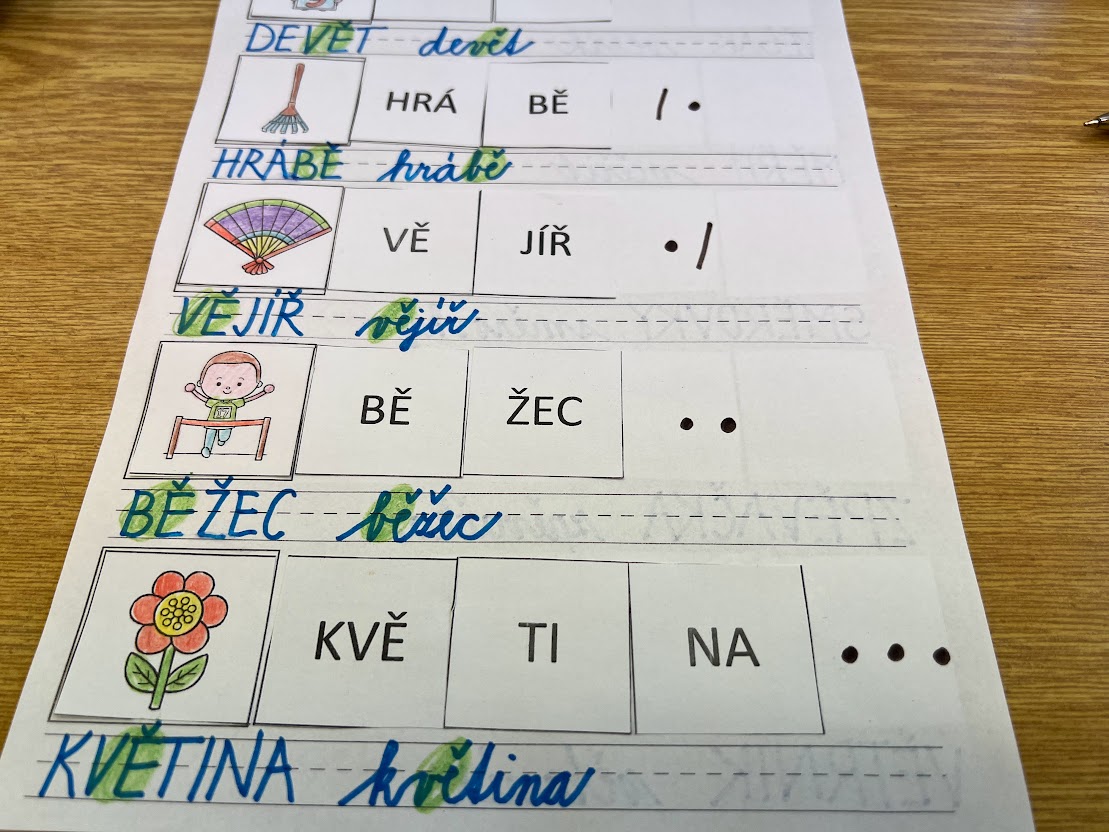 DEVĚT devět
HRÁ BĚ
HRÁBĚ hrábě
VĚ JÍŘ
VĚJÍŘ vějíř
17
BĚ ŽEC
BĚŽEC běžec
KVĚ TI NA
KVĚTINA květina